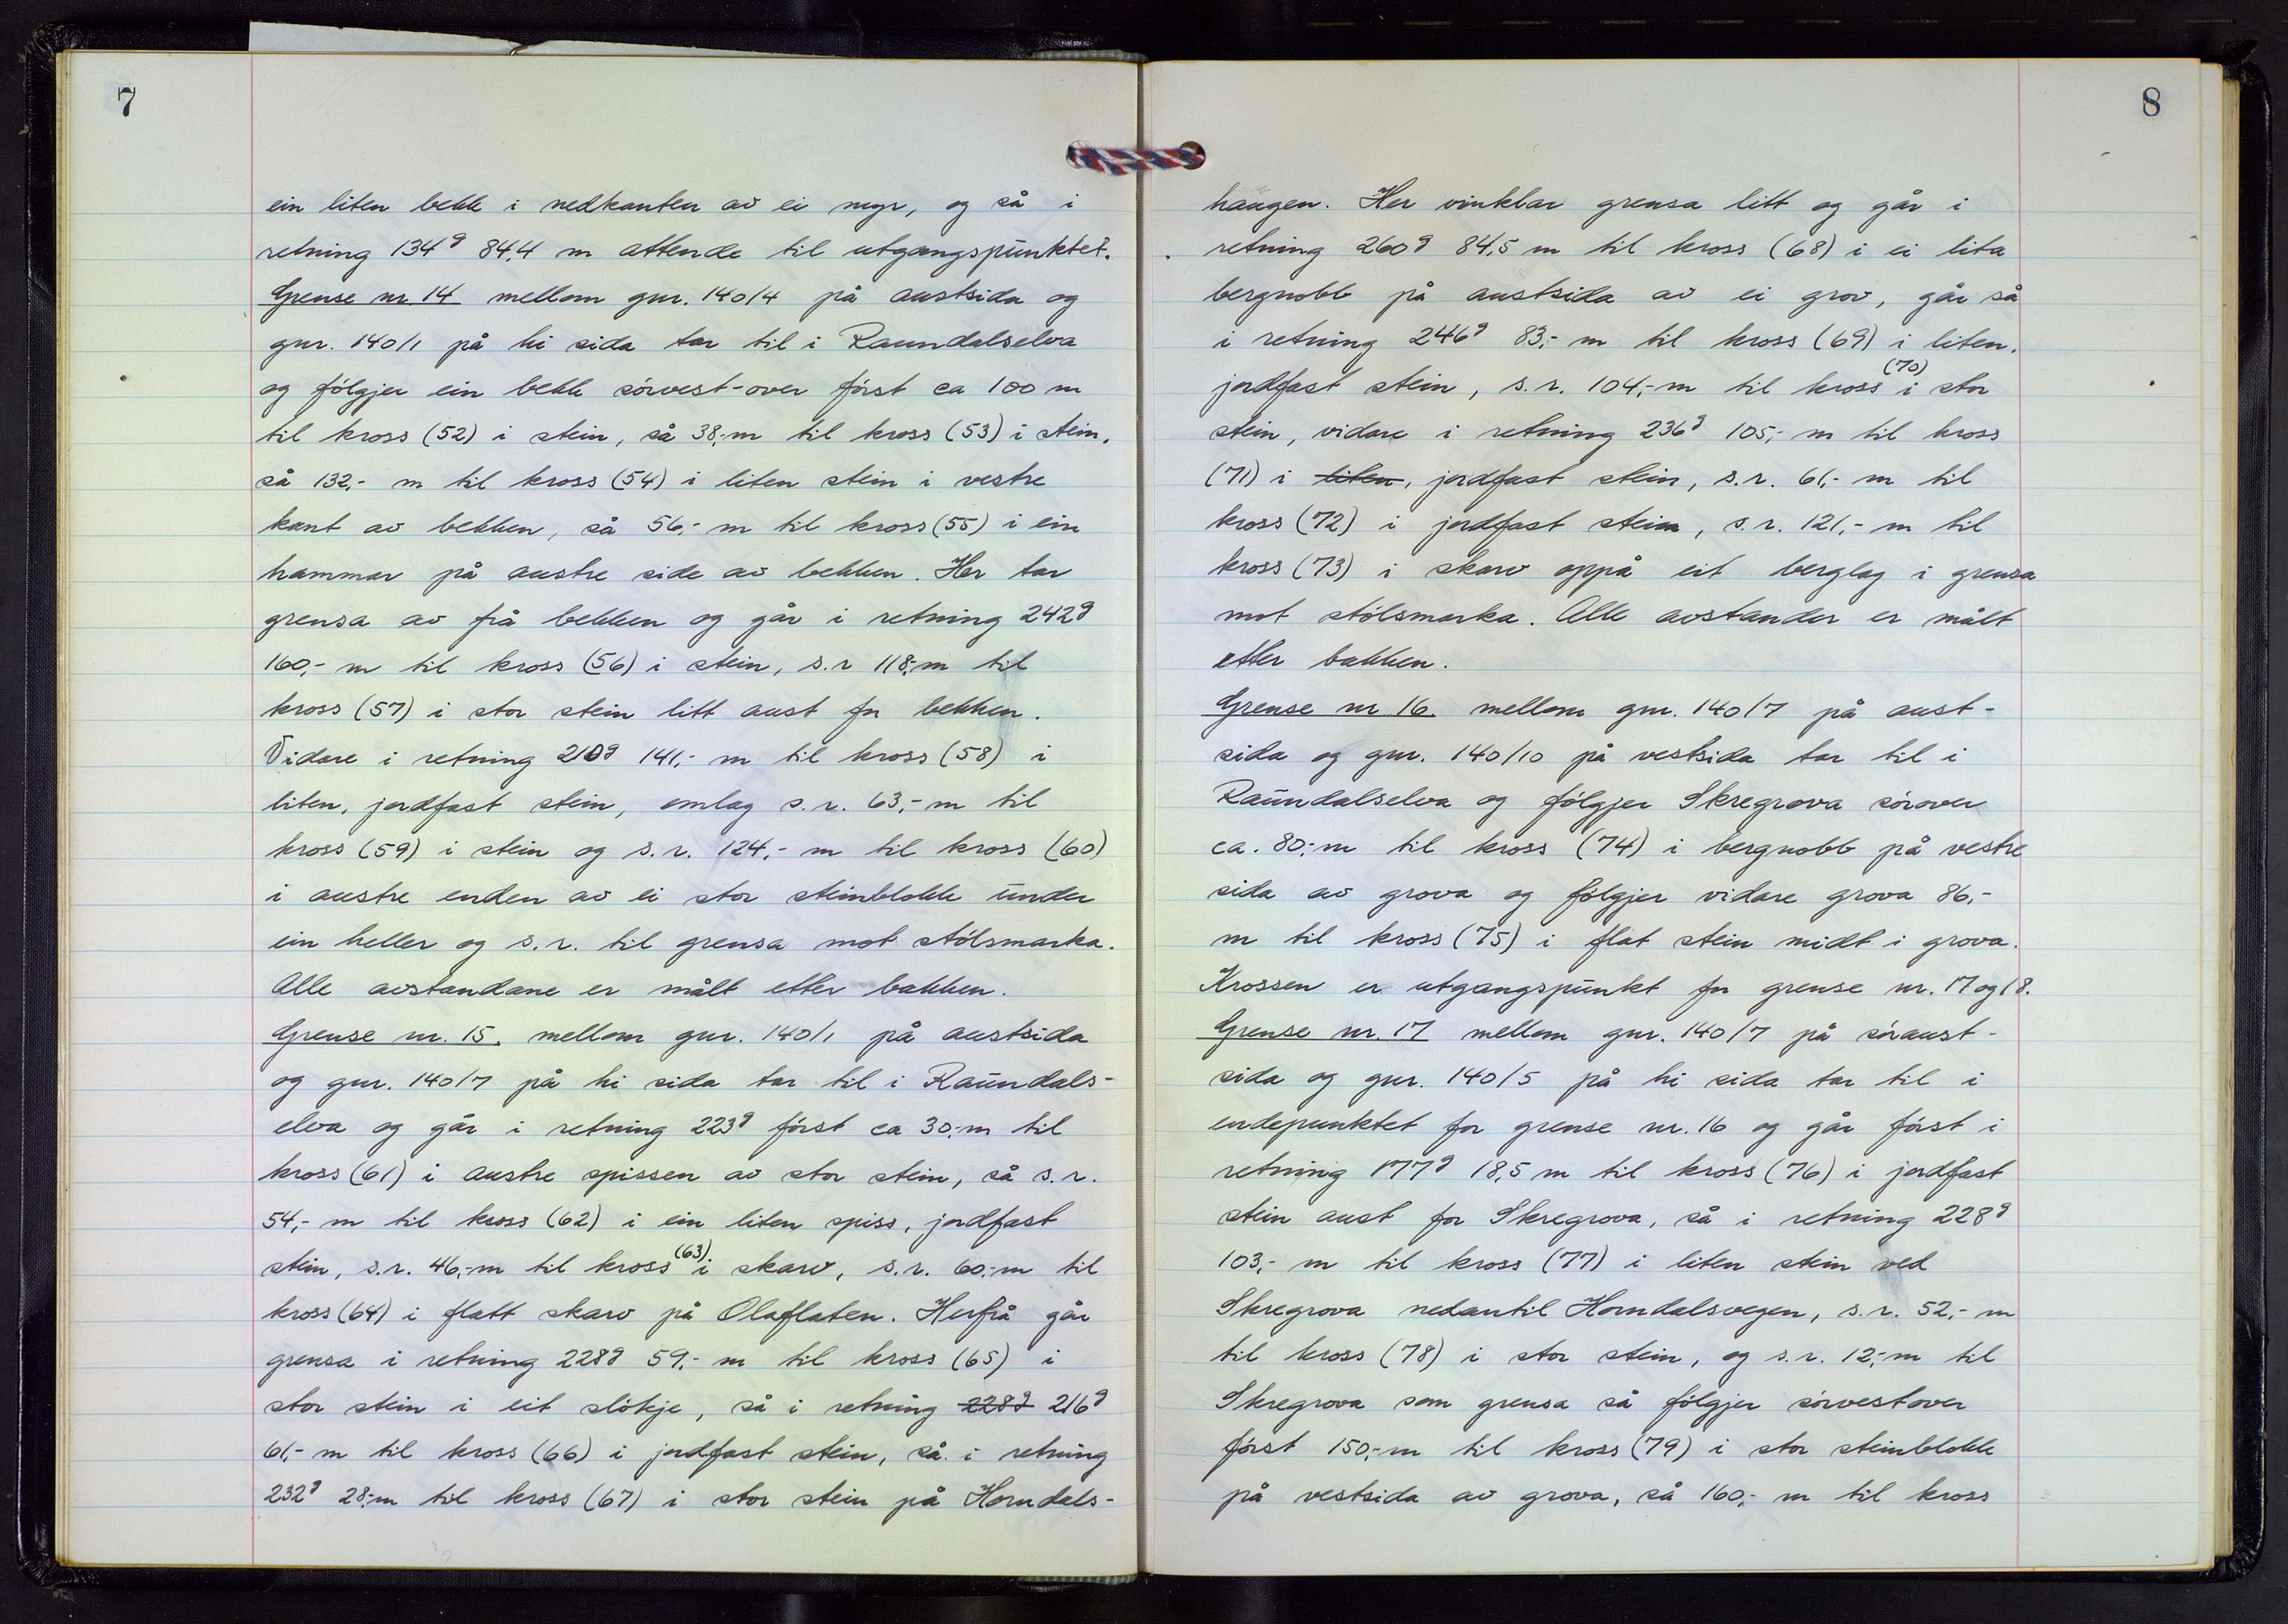 7
ein liten bekk i nedkanten av ei myr, og så i
retning 134g 84,4 m attende til utgangspunktet.
Grense nr 14 mellom gnr. 140/4 på austsida og
gnr. 140/1 på hi sida tar til i Raundalselva
og følgjer ein bekk sørvest-over først ca 100 m
til kross (52) i stein, så 38,-m til kross (53) i stein,
så 132,- m til kross (54) i liten stein i vestre
kant av bekken, så 56,- m til kross (55) i ein
hammar på austre side av bekken. Her tar
grensa av frå bekken og går i retning 242g
160,- m til kross (56) i stein, s.r 118,-m til
kross (57) i stor stein litt aust for bekken.
Vidare i retning 210g 141,- m til kross (58) i
liten, jordfast stein, omlag s.r. 63,- m til
kross (59) i stein og s.r. 124,- m til kross (60)
i austre enden av ei stor steinblokk under
ein heller og s.r. til grensa mot stølsmarka.
Alle avstandane er målt etter bakken.
Grense nr. 15. mellom gnr. 140/1 på austsida
og gnr. 140/7 på hi sida tar til i Raundals-
elva og går i retning 223g først ca 30,-m til
kross (61) i austre spissen av stor stein, så s.r.
54,- m til kross (62) i ein liten spiss, jordfast
stein, s.r. 46,-m til kross (63) i skarv, s.r. 60,-m til
kross (64) i flatt skarv på Olaflaten. Herfrå går
grensa i retning 228g 59,- m til kross (65) i
stor stein i eit slökje, så i retning 228g 216g
61,- m til kross (66) i jordfast stein, så i retning
232g 28,-m til kross (67) i stor stein på Horndals-
8
haugen. Her vinklar grensa litt og går i
retning 260g 84,5 m til kross (68) i ei lita
bergnobb på austsida av ei grov, går så
i retning 246g 83,- m til kross (69) i liten,
jordfast stein, s.r. 104,-m til kross (70) i stor
stein, vidare i retning 236g 105,- m til kross
(71) i liten, jordfast stein, s.r. 61,- m til
kross (72) i jordfast stein, s.r. 121,- m til
kross (73) i skarv oppå eit berglag i grensa
mot stølsmarka. Alle avstander er målt
etter bakken.
Grense nr 16 mellom gnr. 140/7 på aust-
sida og gnr. 140/10 på vestsida tar til i
Raundalselva og følgjer Skregrova sørover
ca. 80,-m til kross (74) i bergnobb på vestre
sida av grova og følgjer vidare grova 86,-
m til kross (75) i flat stein midt i grova.
Krossen er utgangspunkt for grense nr. 17 og 18.
Grense nr. 17 mellom gnr. 140/7 på søraust-
sida og gnr. 140/5 på hi sida tar til i
endepunktet for grense nr. 16 og går først i
retning 177g 18,5 m til kross (76) i jordfast
stein aust for Skregrova, så i retning 228g
103,- m til kross (77) i liten stein ved
Skregrova nedantil Horndalsvegen, s.r. 52,- m
til kross (78) i stor stein, og s.r. 12,-m til
Skregrova som grensa så følgjer sørvestover
først 150,-m til kross (79) i stor steinblokk
på vestsida av grova, så 160,- m til kross